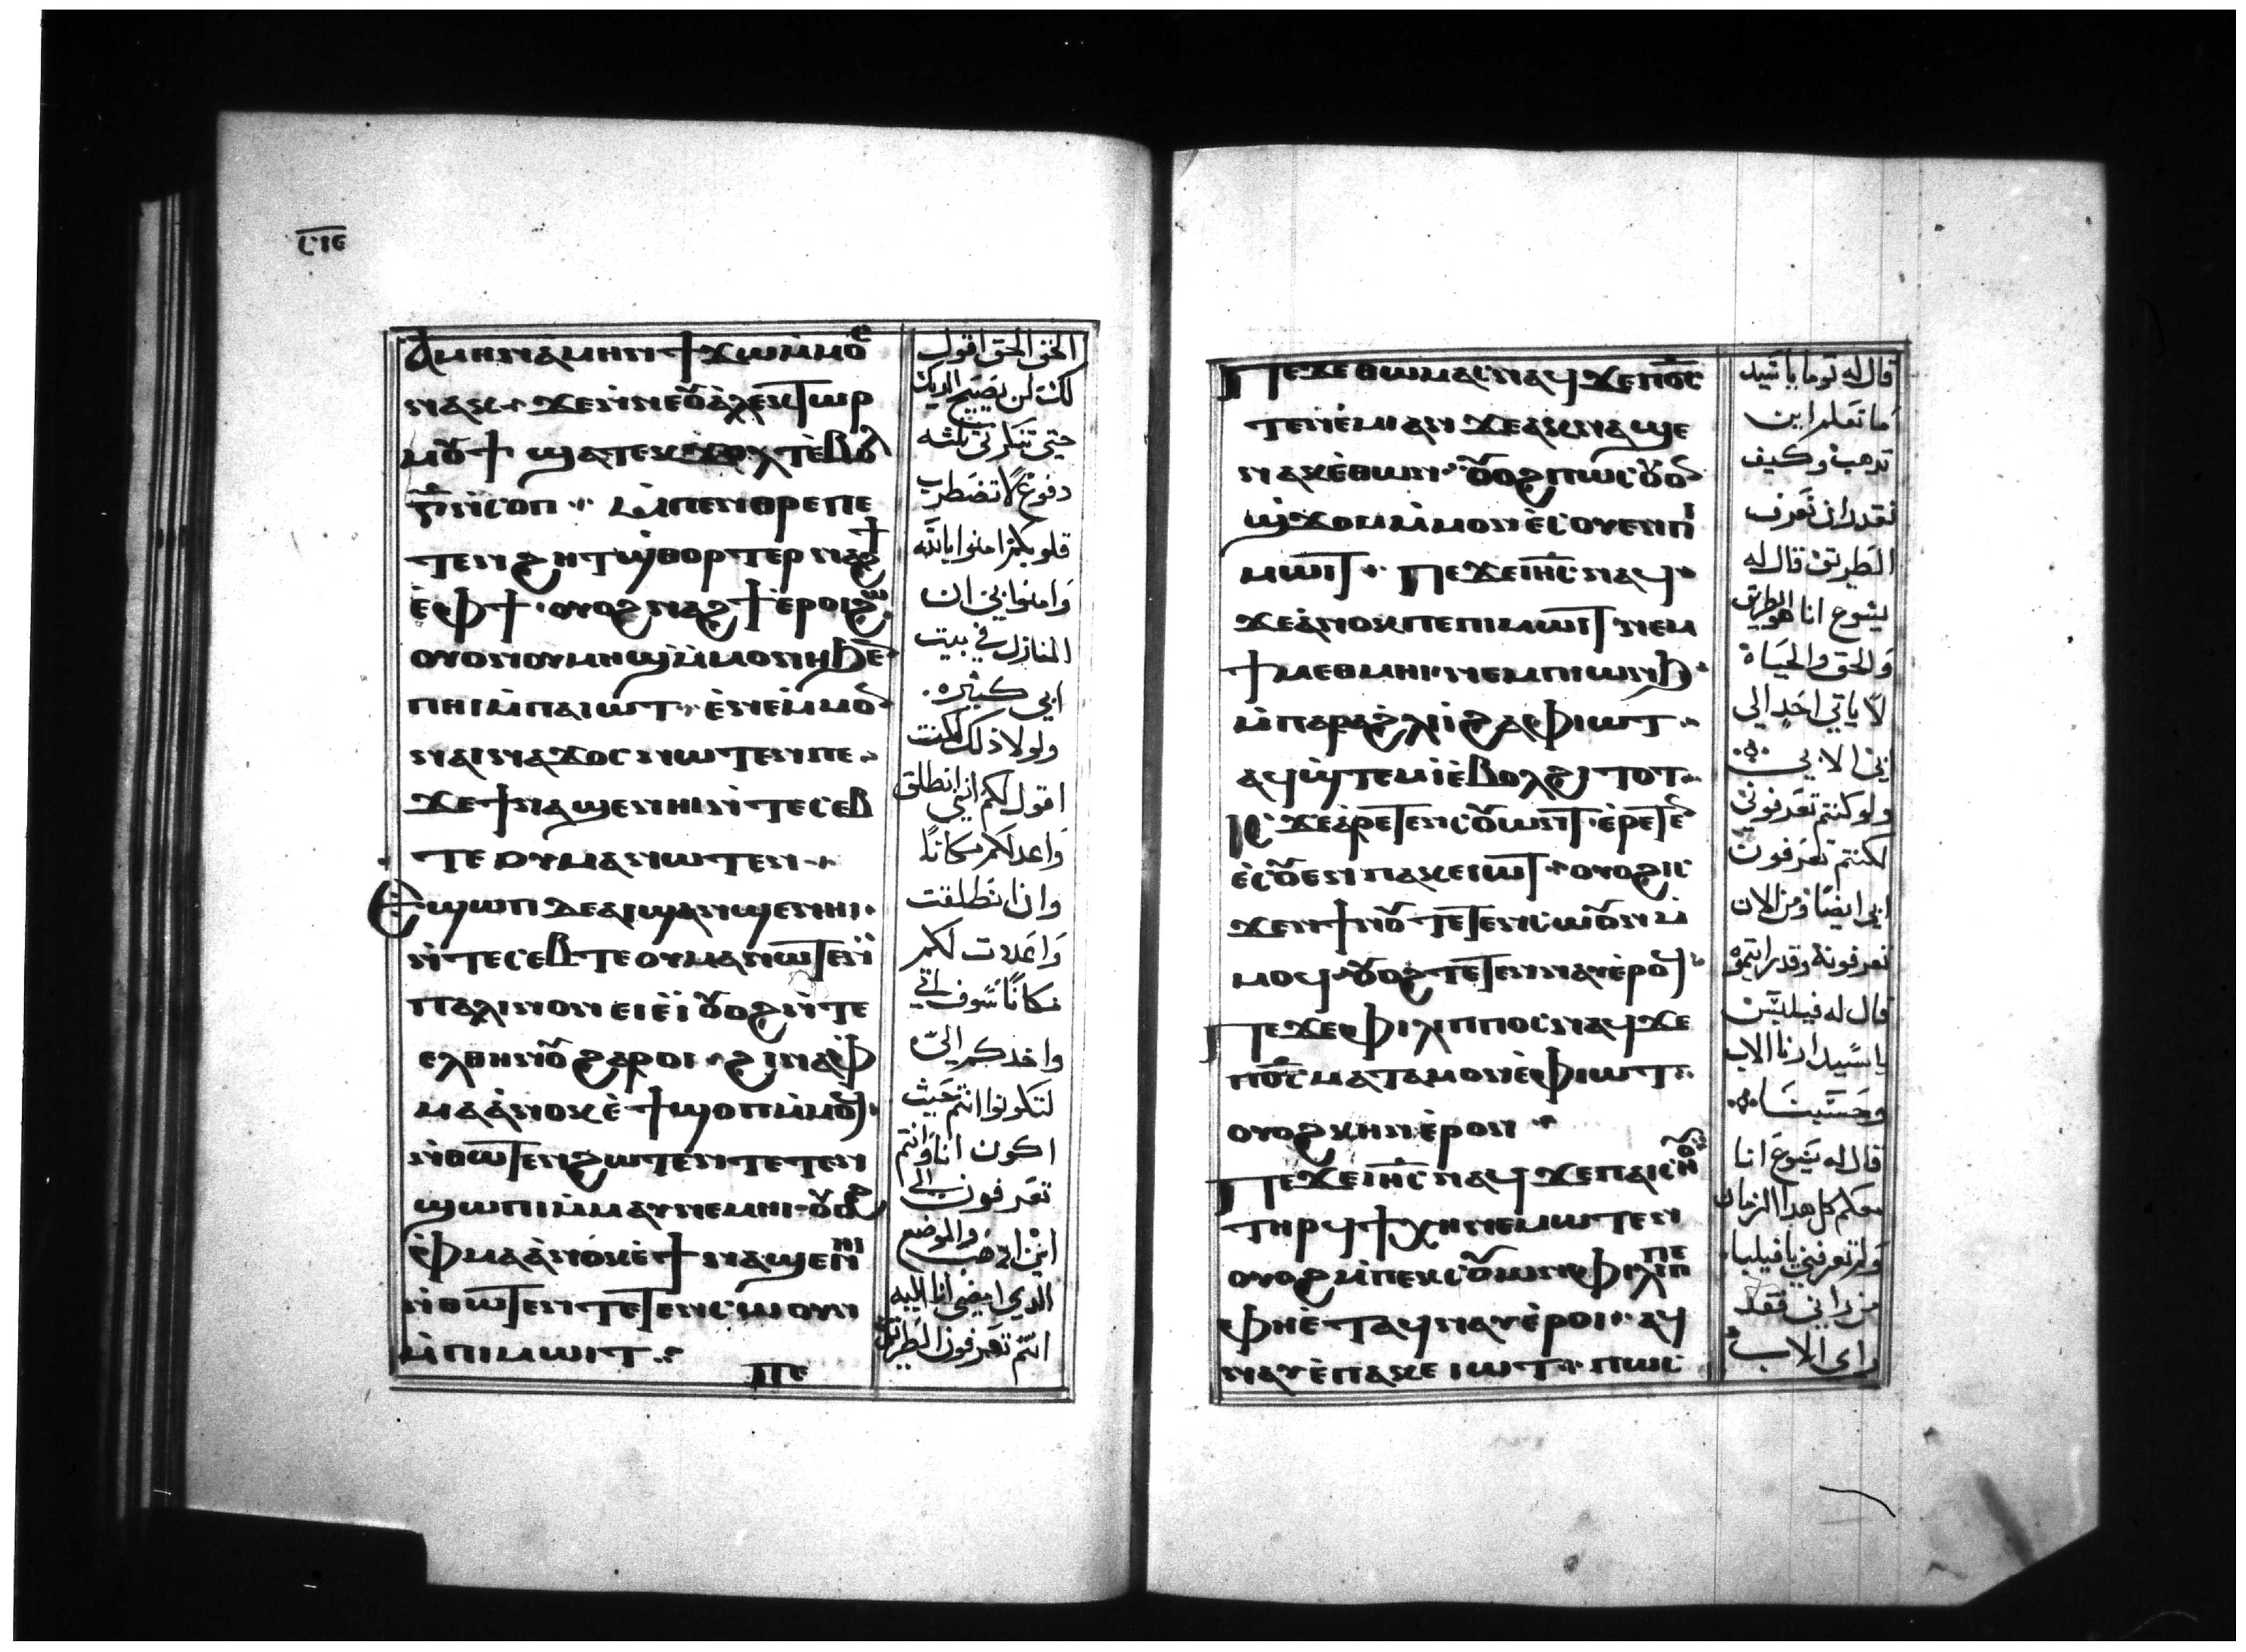 ⲥ̅ⲓ̅ⲉ̅
ⲁⲙⲏⲛ ⲁⲙⲏⲛ ϯϫⲱ ⲙ̀ⲙⲟⲥ
ⲛⲁⲕ ϫⲉ ⲛ̀ⲛⲉ ⲟⲩⲁⲗⲉⲕⲧⲱⲣ
ⲙⲟⲩϯ ϣⲁⲧⲉⲕϫⲟⲗⲧ ⲉ̀ⲃⲟⲗ
ⲅ̅ ⲛ̀ⲥⲟⲡ ⲙ̀ⲡⲉⲛⲑⲣⲉ ⲡⲉ
ⲧⲉⲛϩⲏⲧ ϣ̀ⲑⲟⲣⲧⲉⲣ ⲛⲁϩϯ
ⲉ̀ⲫϯ ⲟⲩⲟϩ ⲛⲁϩϯ ⲉ̀ⲣⲟⲓ ϩⲱ
ⲟⲩⲟⲛ ⲟⲩⲙⲏϣ ⲙ̀ⲙⲟⲛⲏ ϧⲉⲛ
ⲡⲏⲓ ⲙ̀ⲡⲁⲓⲱⲧ ⲉⲛⲉ ⲙ̀ⲙⲟⲛ
ⲛⲁⲓⲛⲁϫⲟⲥ ⲛⲱⲧⲉⲛ ⲡⲉ
ϫⲉ ϯⲛⲁϣⲉⲛⲏⲓ ⲛ̀ⲧⲉⲥⲉⲃ
ⲧⲉ ⲟⲩⲙⲁ ⲛⲱⲧⲉⲛ
ⲉϣⲱⲡ ⲇⲉ ⲁⲓϣⲁⲛϣⲉⲛⲏⲓ
ⲛ̀ⲧⲉⲥⲉⲃⲧⲉ ⲟⲩⲙⲁ ⲛⲱⲧⲉⲛ
ⲡⲁⲗⲓⲛ ⲟⲛ ⲉⲓⲉ̀ⲓ ⲟⲩⲟϩ ⲛ̀ⲧⲉ
ⲉⲗ ⲑⲏⲛⲟⲩ ϩⲁⲣⲟⲓ ϩⲓⲛⲁ ⲫ
ⲙⲁ ⲁ̀ⲛⲟⲕ ⲉ̀ϯϣⲟⲡ ⲙ̀ⲙⲟϥ
ⲛ̀ⲑⲱⲧⲉⲛ ϩⲱⲧⲉⲛ ⲧⲉⲧⲉⲛ
ϣⲱⲡⲓ ⲙ̀ⲙⲁⲩ ⲛⲉⲙⲏⲓ ⲟⲩⲟϩ
ⲫ̀ⲙⲁ ⲁ̀ⲛⲟⲕ ⲉ̀ϯⲛⲁϣⲉⲛⲏⲓ
ⲛ̀ⲑⲱⲧⲉⲛ ⲧⲉⲧⲉⲛⲥⲱⲟⲩⲛ
ⲙ̀ⲡⲓⲙⲱⲓⲧ
ⲡⲉ
الحق الحق اقول
لك لن يصيح الديك
حتى تنكرني ثلثه
دفوع لا تضطرب
قلوبكم امنوا بالله
وامنوا بي ان
المنازل في بيت
ابي كثيره
ولولا ذلك لكنت
اقول لكم انني انطلق
واعد لكم مكانًا
وان انطلقت
واعددت لكم
مكانًا سوف اتي
واخذكم اليّ
لتكونوا انتم حيث
اكون انا وانتم
تعرفون الي
اين اذهب والموضع
الدي امضي انا اليه
انتم تعرفون الطريق
ⲡⲉϫⲉ ⲑⲱⲙⲁⲥ ⲛⲁϥ ϫⲉ ⲡⲟ̅ⲥ̅
ⲧⲉⲛⲉ̀ⲙⲓ ⲁⲛ ϫⲉ ⲁⲕⲛⲁϣⲉ
ⲛⲁⲕ ⲉ̀ⲑⲱⲛ ⲟⲩⲟϩ ⲡⲱⲥ ⲟⲩⲟⲛ
ϣ̀ϫⲟⲙ ⲙ̀ⲙⲟⲛ ⲉ̀ⲥⲟⲩⲉⲛ ⲡⲓ
ⲙⲱⲓⲧ ⲡⲉϫⲉ ⲓⲏ̅ⲥ̅ ⲛⲁϥ
ϫⲉ ⲁ̀ⲛⲟⲕ ⲡⲉ ⲡⲓⲙⲱⲓⲧ ⲛⲉⲙ
ϯⲙⲉⲑⲙⲏⲓ ⲛⲉⲙ ⲡⲓⲱⲛϧ
ⲙ̀ⲡⲁⲣⲉ ϩ̀ⲗⲓ ⲓ̀ ϩⲁ ⲫⲓⲱⲧ
ⲁϥϣ̀ⲧⲉⲙⲓ̀ ⲉ̀ⲃⲟⲗ ϩⲓⲧⲟⲧ
ⲓⲥϫⲉ ⲁ̀ⲣⲉⲧⲉⲛⲥⲟⲩⲱⲛⲧ ⲉ̀ⲣⲉⲧⲉⲛ
ⲉ̀ⲥⲟⲩⲉⲛ ⲡⲁⲕⲉⲓⲱⲧ ⲟⲩⲟϩ ⲓⲥ
ϫⲉⲛ ϯⲛⲟⲩ ⲧⲉⲧⲉⲛⲥⲱⲟⲩⲛ ⲙ̀
ⲙⲟϥ ⲟⲩⲟϩ ⲧⲉⲧⲉⲛⲛⲁⲩ ⲉ̀ⲣⲟϥ
ⲡⲉϫⲉ ⲫⲓⲗⲓⲡⲡⲟⲥ ⲛⲁϥ ϫⲉ
ⲡⲟ̅ⲥ̅ ⲙⲁⲧⲁⲙⲟⲛ ⲉ̀ⲫⲓⲱⲧ
ⲟⲩⲟϩ ⲕⲏⲛ ⲉ̀ⲣⲟⲛ
ⲡⲉϫⲉ ⲓⲏ̅ⲥ̅ ⲛⲁϥ ϫⲉ ⲡⲁⲓⲥⲏⲟⲩ
ⲧⲏⲣϥ ϯⲭⲏ ⲛⲉⲙⲱⲧⲉⲛ
ⲟⲩⲟϩ ⲙ̀ⲡⲉⲕⲥⲟⲩⲱⲛⲧ ⲫⲓⲗⲓⲡⲡⲉ
ⲫⲏⲉ̀ⲧⲁϥⲛⲁⲩ ⲉ̀ⲣⲟⲓ ⲁϥ
ⲛⲁⲩ ⲉ̀ⲡⲁⲕⲉⲓⲱⲧ ⲡⲱⲥ
قال له توما يا سيد
ما نعلم اين
تدهب وكيف
نقدر ان نعرف
الطريق قال له
يسوع انا هو الطريق
والحق والحياة
لا ياتي احد الى
ابي الا بي
ولو كنتم تعرفوني
لكنتم تعرفون
ابي ايضًا ومن الان
تعرفونه وقد رايتموه
قال له فيلبس
يا سيد ارنا الاب
وحسبنا
قال له يسوع انا
معكم كل هدا الزمان
ولم تعرفني يا فيلبا
من راني فقد
راى الاب